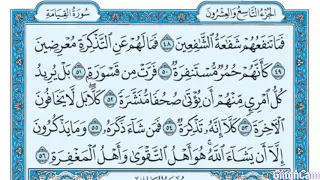 الجُزْءُ التَّاسِعُ وَالعِشْرُونَ سُورَةُ القِيَامَةِ
فَمَا تَنفَعُهُمْ شَفَٰعَةُ ٱلشَّٰفِعِينَ ٤٨ فَمَا لَهُمْ عَنِ ٱلتَّذْكِرَةِ مُعْرِضِينَ
٤٩ كَأَنَّهُمْ حُمُرٌ مُّسْتَنفِرَةٌ ٥٠ فَرَّتْ مِن قَسْوَرَةٍۭ ٥١ بَلْ يُرِيدُ
كُلُّ ٱمْرِئٍ مِّنْهُمْ أَن يُؤْتَىٰ صُحُفًا مُّنَشَّرَةً ٥٢ كَلَّا ۖ بَل لَّا يَخَافُونَ
ٱلْءَاخِرَةَ ٥٣ كَلَّآ إِنَّهُۥ تَذْكِرَةٌ ٥٤ فَمَن شَآءَ ذَكَرَهُۥ ٥٥ وَمَا يَذْكُرُونَ
إِلَّآ أَن يَشَآءَ ٱللَّهُ ۚ هُوَ أَهْلُ ٱلتَّقْوَىٰ وَأَهْلُ ٱلْمَغْفِرَةِ ٥٦
GlitchCam